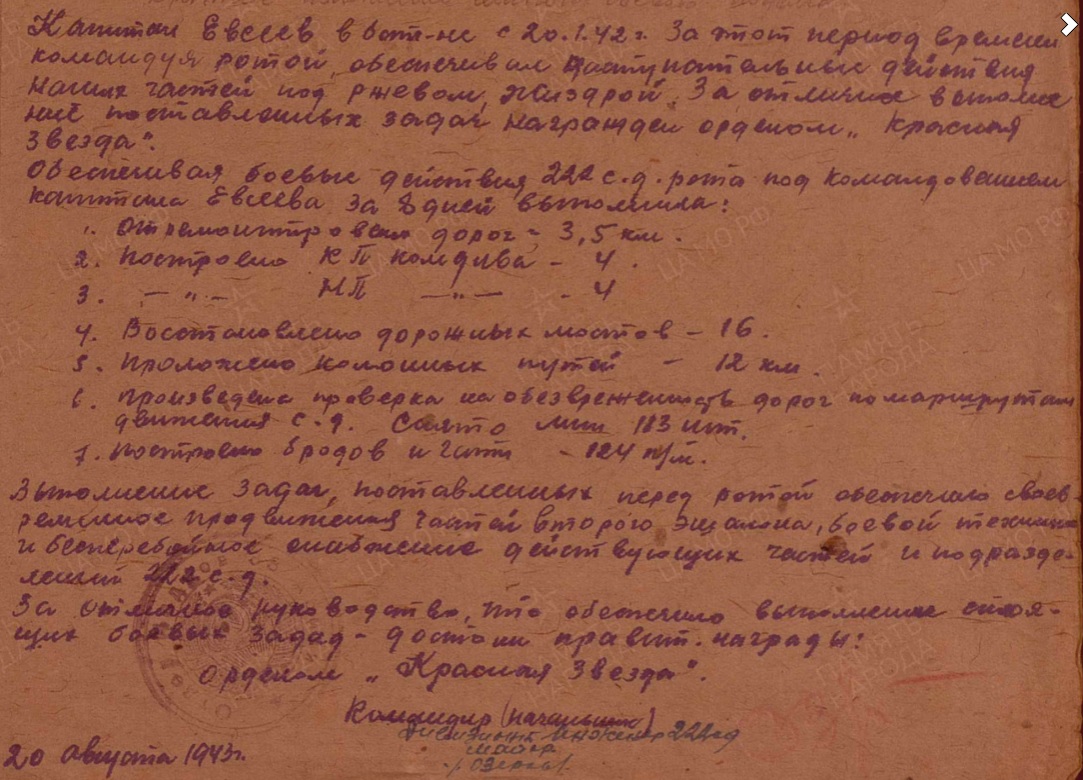 Капитан Евсеев в бат-не с 20.1.42 г. За этот период времени
командуя ротой, обеспечивал наступательные действия
наших частей под Ржевом, Жиздрой. За отличное выполне
ние поставленных задач награжден орденом „Красная
Звезда".
Обеспечивая боевые действия 222 с.д. рота под командованием
капитана Евсеева за 8 дней выполнила:
1. Отремонтировано дорог - 3,5 км.
2. Построено КП комдива - 4.
3. —„— НП —„— - 4
4. Восстановлено дорожных мостов - 16.
5. Проложено колонных путей - 12 км.
6. Произведена проверка на обезвреженность дорог по маршрутам
движения с.д. Снято мин 183 шт.
7. Построено бродов и гати - 124 п/м.
Выполнение задач, поставленных перед ротой обеспечило своев-
ременное продвижения частей второго эшалона, боевой техники
и бесперебойное снабжение действующих частей и подразде-
лений 222 с.д.
За отличное руководство, что обеспечило выполнение стоя-
щих боевых задад - достоин правит. награды:
орденом „Красная Звезда".
Командир (начальник)
дивизионный инженер 222 сд
майор
20 августа 1943 г.